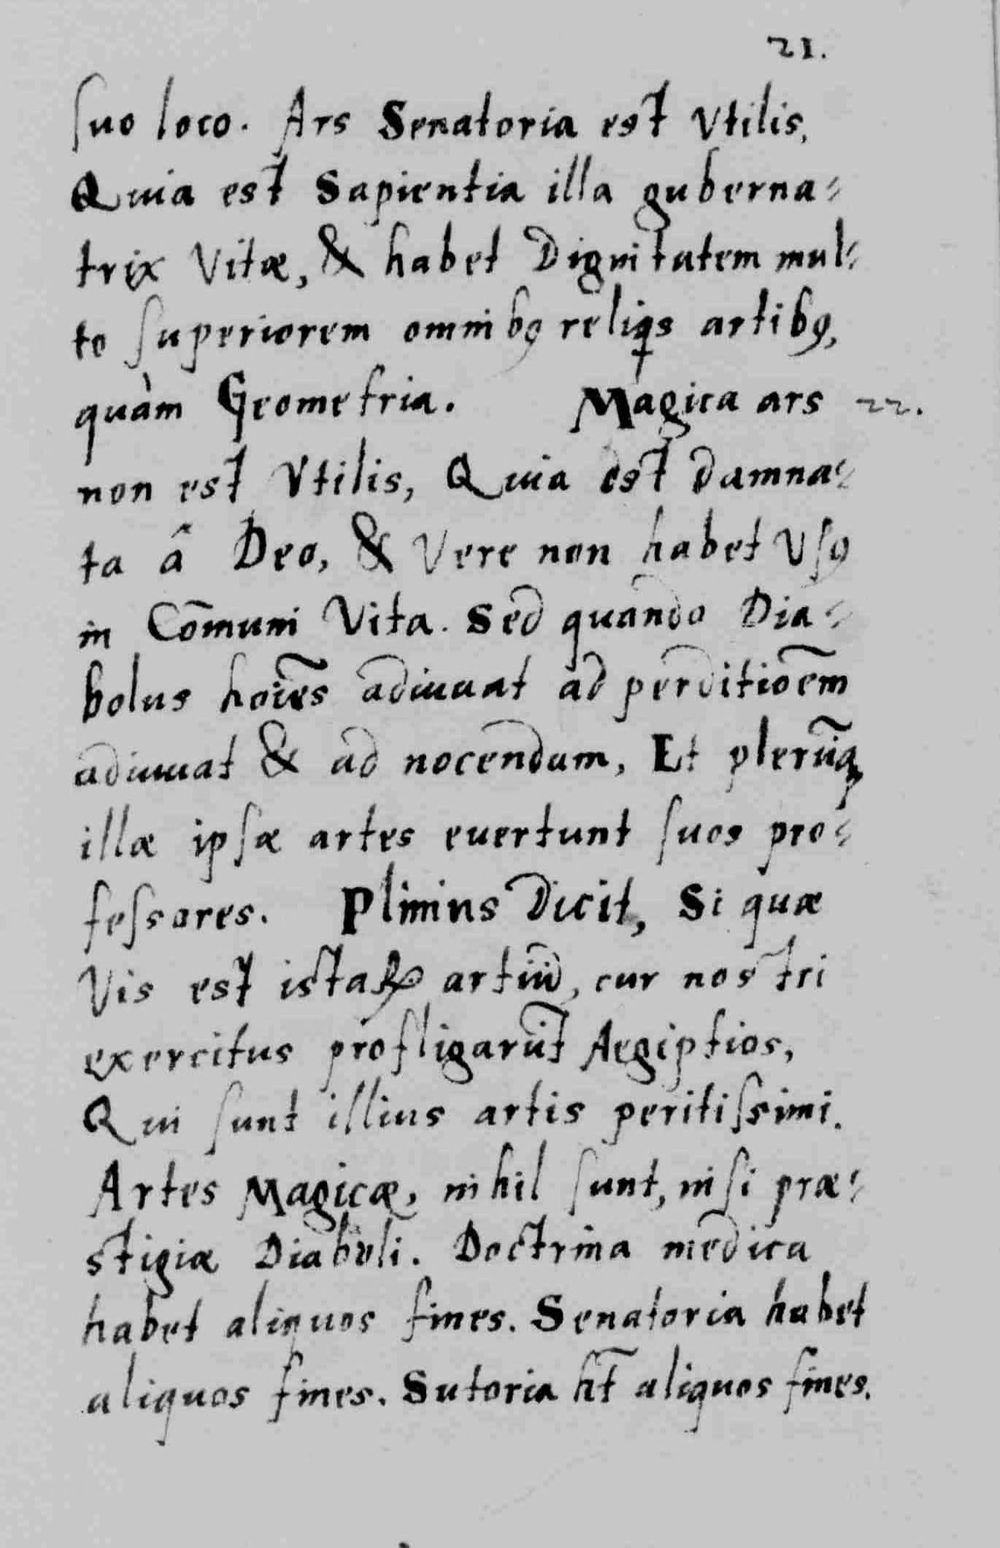 21.
ſuo loco. Ars Senatoria est Vtilis,
Quia est Sapientia illa guberna⸗
trix Vitæ, & habet Dignitatem mul⸗
to ſuperiorem omnibꝰ reliqꝭs artibꝰ,
quàm Geometria. Magica ars 22.
non est Vtilis, Quia est damna⸗
ta â Deo, & Vere non habet Vſꝰ
in Com̄uni Vita. Sed quando Dia⸗
bolus hoīes adiuuat ad perditioēm
adiuuat & ad nocendum, Et plerūqꝫ
illæ ipſæ artes euertunt ſuos pro⸗
feſsores. Plinius Dicit, Si quæ
Vis est istaꝝ artiū, cur nostri
exercitus profligarūt Aegiptios,
Qui ſunt illius artis peritiſsimi.
Artes Magicæ, nihil ſunt, niſi præ⸗
stigiæ Diaboli. Doctrina medica
habet aliquos fines. Senatoria habet
aliquos fines. Sutoria ht̄ aliquos fines.